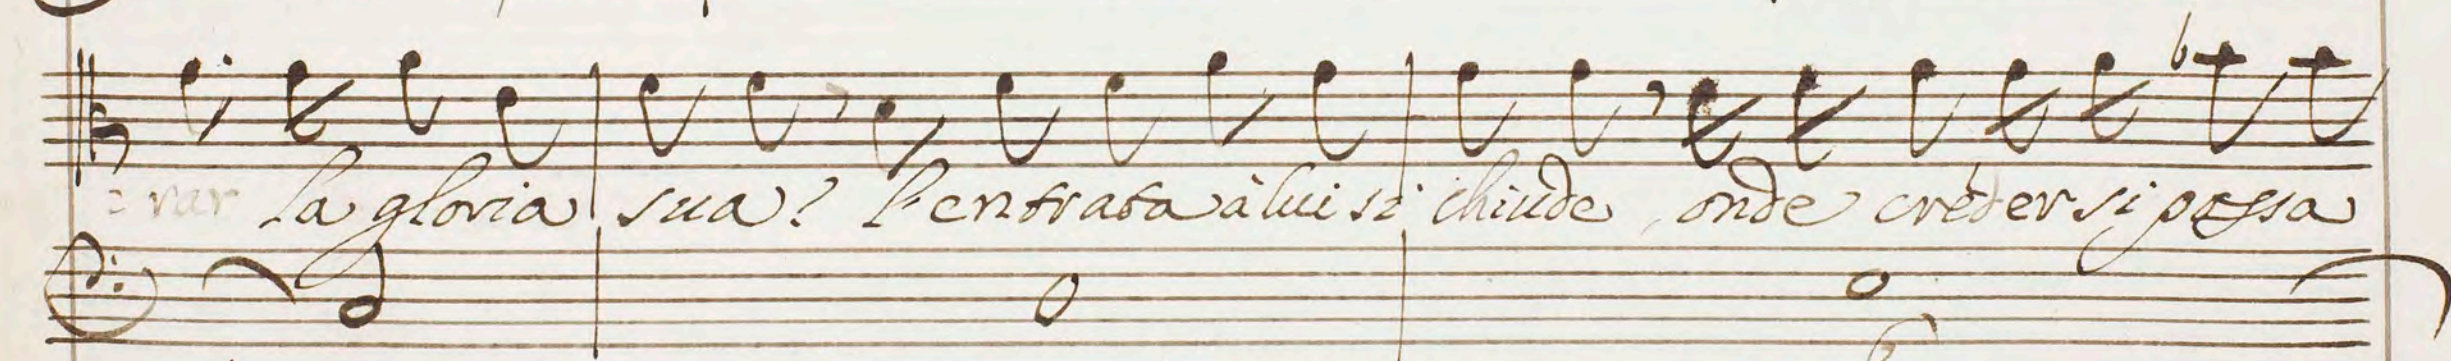 rar la gloria sua? l'entrata à lui si chiude, onde creder si possa